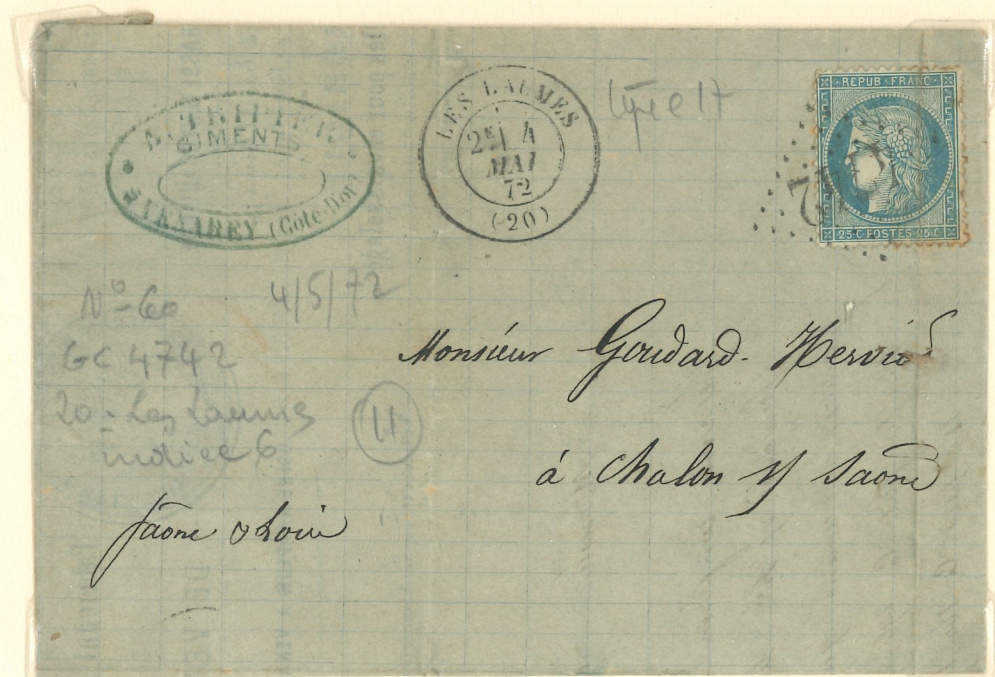 A. TRIPIER
CIMENTS
à VENAREY (Côte-D'or)
LES LAUMES
2E 4
MAI
72
(20)
type 17
REPUB·FRANC·
25·C·POSTES·25·C
4742
No 60
4/5/72
GC 4742
20 - Les Laumes
indice 6
11
Monsieur Goudard-
à Chalon s/ Saône
Saône & Loire